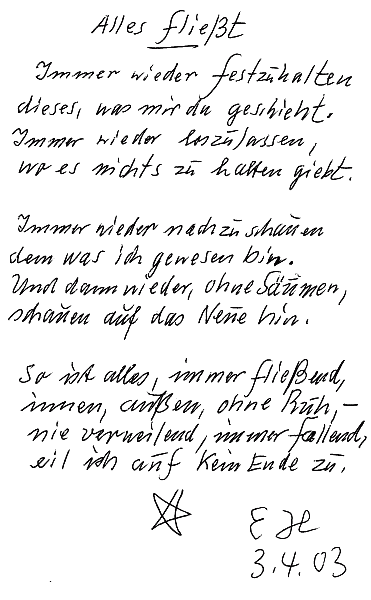 Alles fließt
Immer wieder festzuhalten
dieses, was mir da geschieht.
Immer wieder loszulassen,
wo es nichts zu halten giebt.
Immer wieder nachzuschauen
dem was ich gewesen bin.
Und dann wieder, ohne Säumen,
schauen auf das Neue hin.
So ist alles, immer fließend,
innen, außen, ohne Ruh, –
nie verweilend, immer fallend,
eil ich auf kein Ende zu.
E H
3.4.03